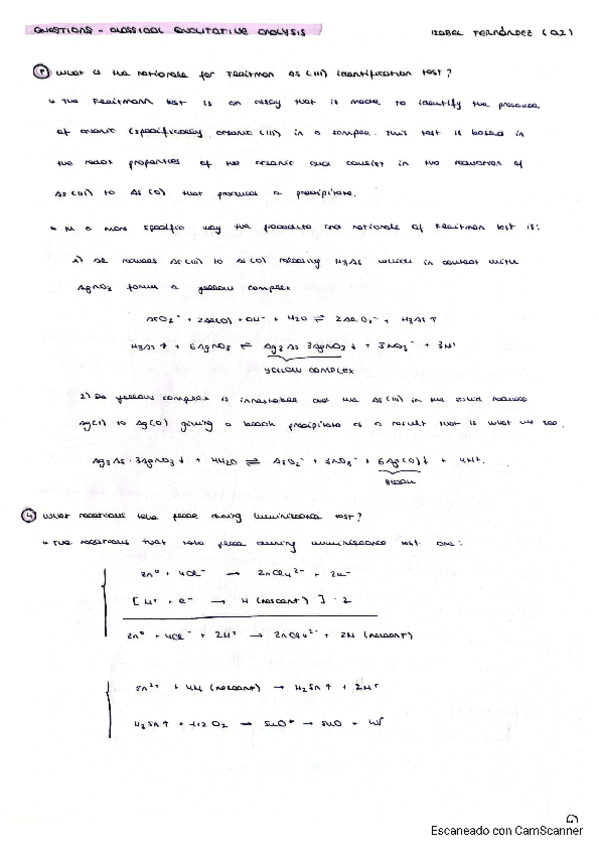 QUESTIONS - CLASSICAL QUALITATIVE ANALYSIS
IZABEL FERNÁNDEZ (Q2)
What is the rationale for Fleitmon As(III) identification test?
The Fleitmann test is an assay that is made to identify the presence
of arsenic (specifically arsenic (III)) in a sample. This test is based in
the redox properties of the arsenic and consist in the reduction of
As(III) to As(0) that produces a precipitate.
In a more specific way the procedure and rationale of Fleitmon test is:
1) Al reduces As(III) to As(0) releasing H3As which in contact with
AgNO3 forms a yellow complex
AsO2⁻ + 2Al(0) + OH⁻ + H2O ⇌ 2AlO2⁻ + H3As↑
H3As↑ + 6AgNO3 ⇌ Ag3As·3AgNO3↓ + 3NO3⁻ + 3H⁺
YELLOW COMPLEX
2) The yellow complex is unstable and the As(III) in the reduces
Ag(I) to Ag(0) giving a black precipitate as a result that is what we see.
Ag3As·3AgNO3↓ + 4H2O ⇌ AsO2⁻ + 3NO3⁻ + 6Ag(0)↓ + 4H⁺.
BLACK
4 What reactions take place during luminiscence test?
The reactions that take place during luminiscence test are:
Zn⁰ + 4Cl⁻ → ZnCl4²⁻ + 2e⁻
[H⁺ + e⁻ → H (nascent)]·2
Zn⁰ + 4Cl⁻ + 2H⁺ → ZnCl4²⁻ + 2H (nascent)
Sn²⁺ + 4H (nascent) → H2Sn↑ + 2H⁺
H2Sn↑ + 1/2 O2 → SnO* → SnO + hν
Escaneado con CamScanner